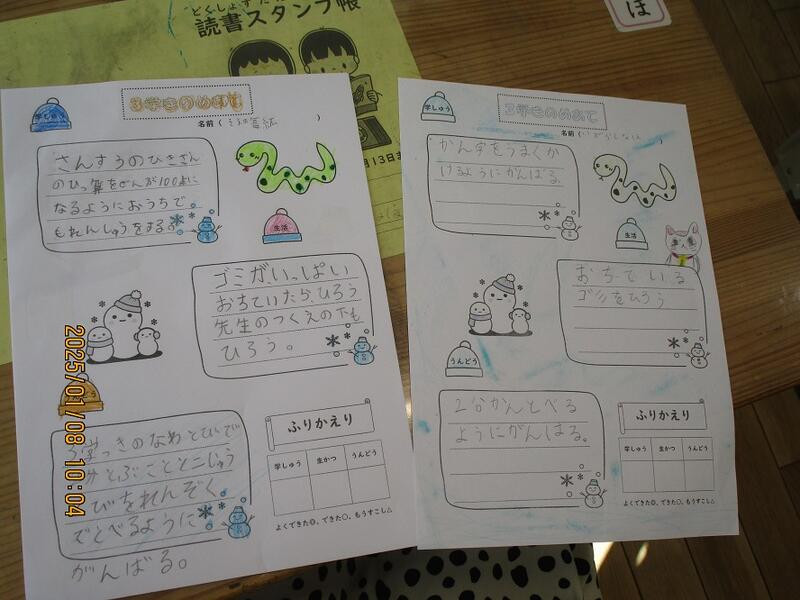 どくしょすた
読書スタンプ帳
ほ
月13日ま
学しゅう
3学きのめあて
名前(
)
さんすうのひきざん
のひっ算をぜんぶ100点に
なるようにおうちで
もれんしゅうをする。
生活
ゴミが、いっぱい
おちていたら、ひろう
先生のつくえの下も
ひろう。
う
3学っきのなわとびで
とぶことと二じゅう
びをれんぞく。
でとべるように
がんばる。
ふりかえり
学しゅう
生かつ
うんどう
よくできた◎、できた○、もうすこし△
学しゅう
3学きのめあて
名前(
)
かん字をうまくか
けるようにがんばる。
生活
おちている
ゴミをひろう
うんどう
2分かんとべる
ようにがんばる。
ふりかえり
学しゅう
生かつ
うんどう
よくできた◎、できた○、もうすこし△
2025/01/08 10:04